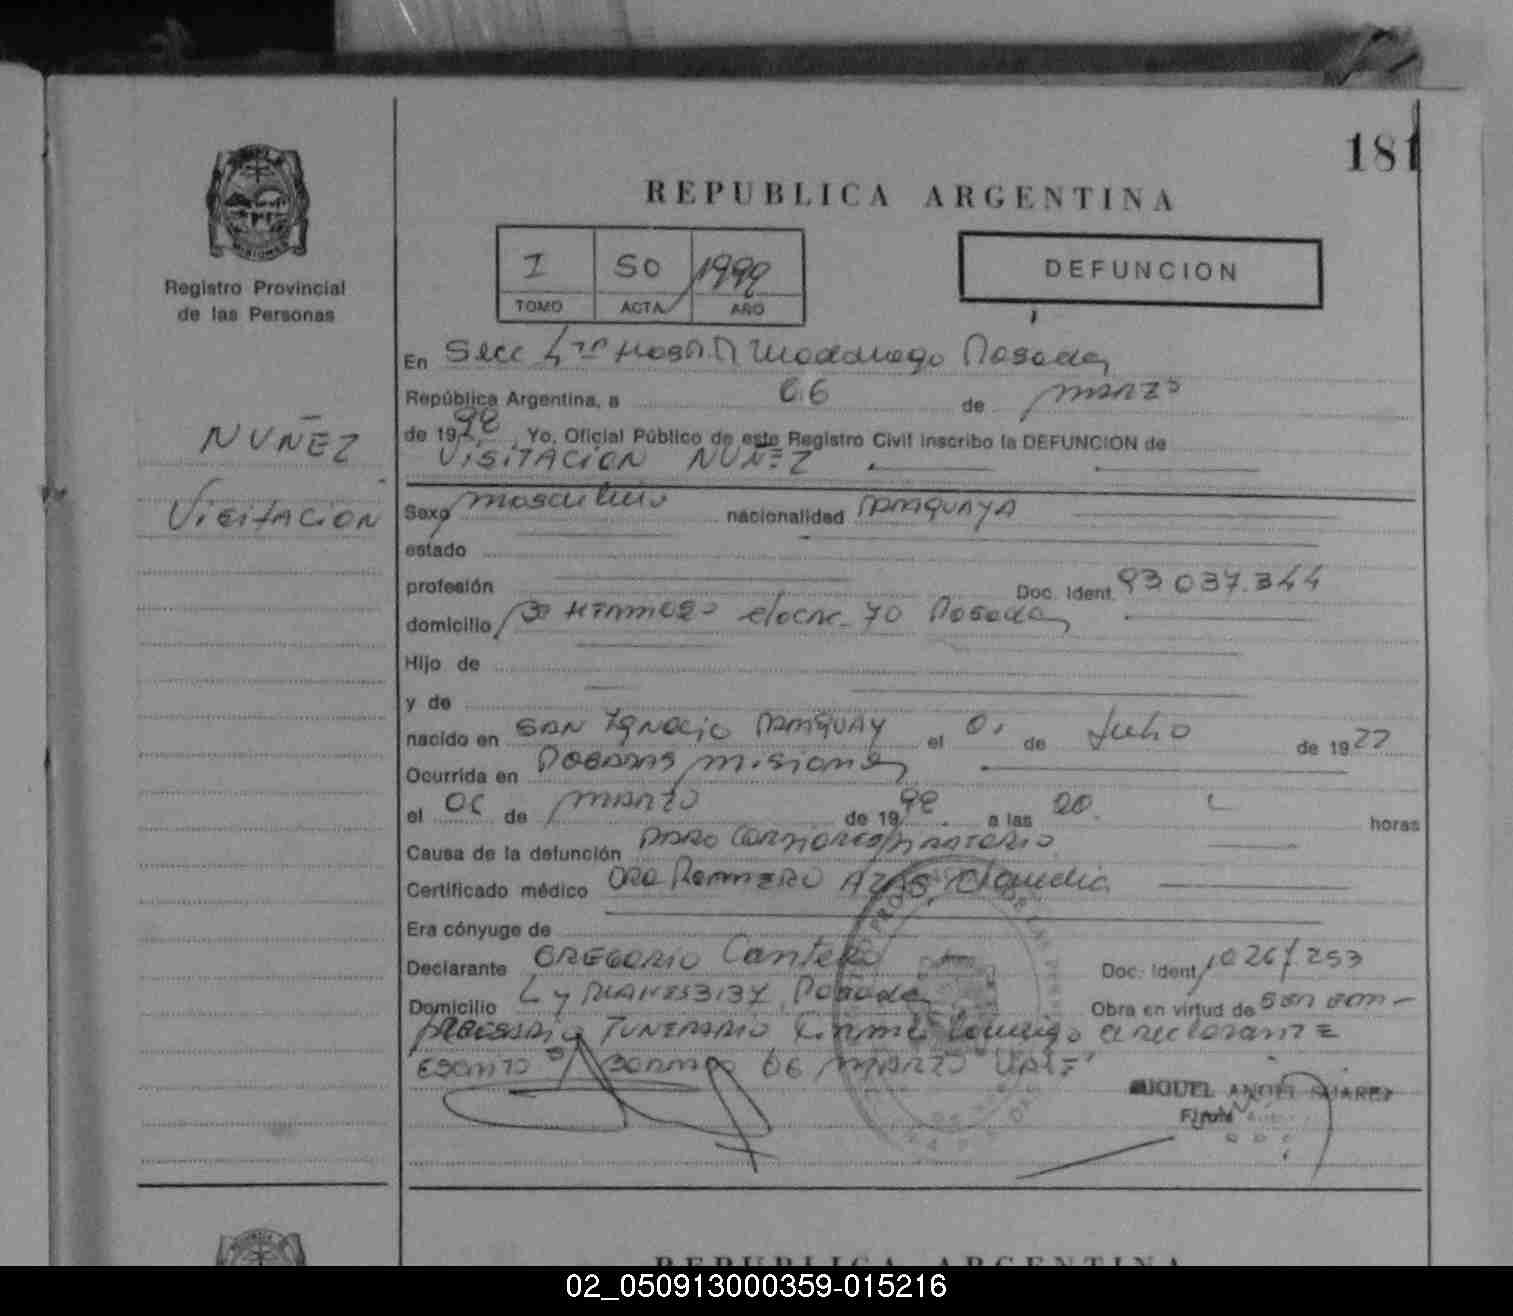 181
REPUBLICA ARGENTINA
Registro Provincial
de las Personas
I 50 1999
TOMO ACTA AÑO
DEFUNCION
En Secc 4ta Hosp. R Madariaga Posadas
República Argentina, a 06 de marzo
de 1999, Yo, Oficial Público de este Registro Civil inscribo la DEFUNCION de
VISITACION NUÑEZ
NUÑEZ
VISITACION
Sexo masculino nacionalidad PARAGUAYA
estado
profesión Doc. Ident. 93 037.344
domicilio Bº HERMOSO 70 Posadas
Hijo de
y de
nacido en SAN Ignacio PARAGUAY el de Julio de 1922
Ocurrida en POSADAS Misiones
el de MARZO de 19 a las 20. horas
Causa de la defunción PARO CARDIORESPIRATORIO
Certificado médico DRA ROMERO Claudia
Era cónyuge de
Declarante GREGORIO Cantero Doc. Ident.
Domicilio L y PLANES 3137 Posadas Obra en virtud de ser em-
presario FUNERARIO Firma conmigo declarante
ESCRITO S/ borrado 06 MARZO VALE
MIGUEL ANGEL SUAREZ
Firma
REPUBLICA ARGENTINA
02_050913000359-015216